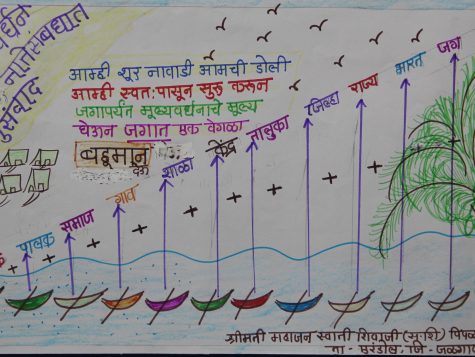 नातेसंबंधात
सुसंवाद
आम्ही शूर नावाडी आमची डोली
आम्ही स्वतः पासून सुरू करून
जगापर्यंत मूल्यवर्धनाचे मूल्य
घेऊन जगात एक वेगळा
बहूमान
पालक
समाज
गाव
शाळा
केंद्र
तालुका
जिल्हा
राज्य
भारत
जग
श्रीमती महाजन स्वाती शिवाजी (सू-शि)
ता - एरंडोल, जि- जळगाव